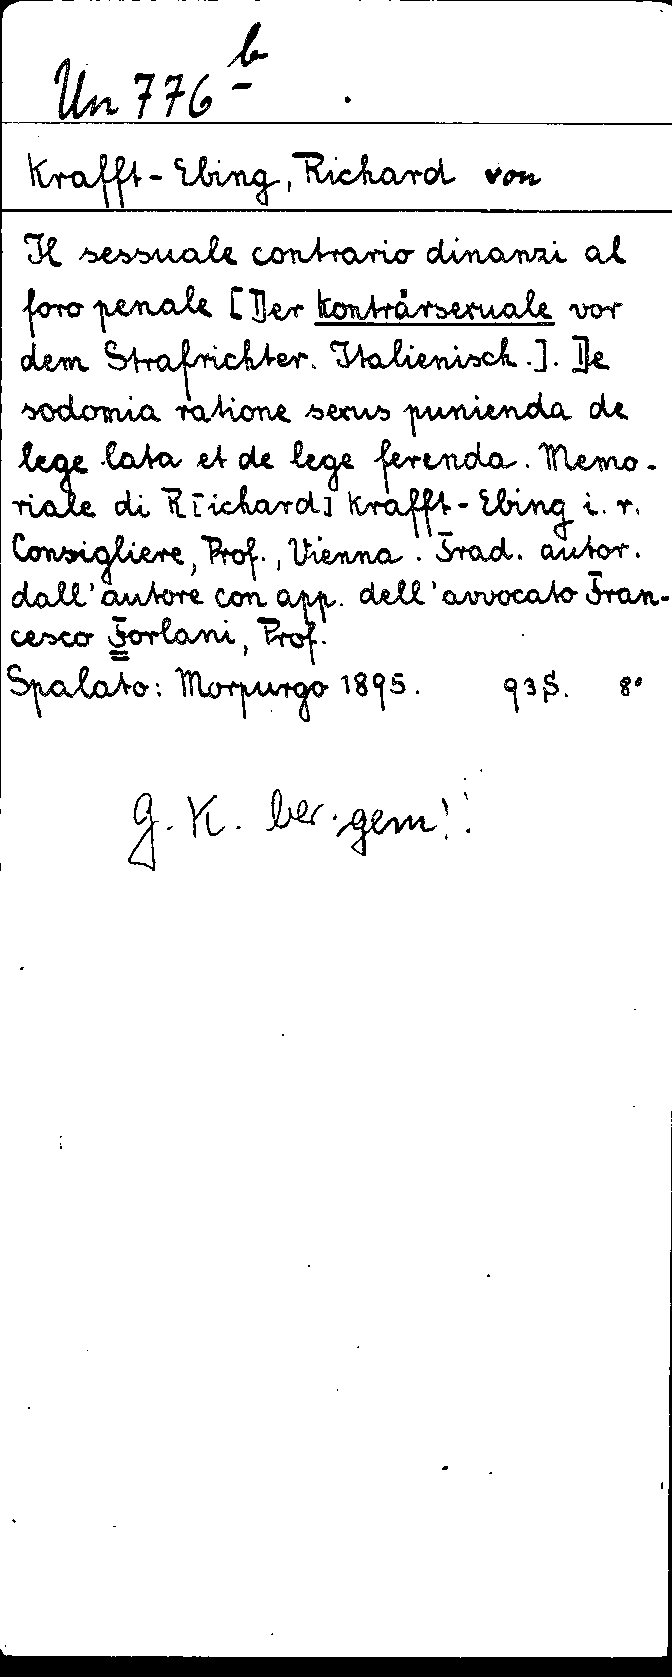 Un 776 b
Krafft-Ebing, Richard von
Il sessuale contrario dinanzi al
foro penale [Der Konträrsexuale vor
dem Strafrichter. Italienisch.]. De
sodomia ratione sexus punienda de
lege lata et de lege ferenda. Memo-
riale di R[ichard] Krafft-Ebing i. r.
Consigliere, Prof., Vienna. Trad. autor.
dall'autore con app. dell'avvocato Fran-
cesco Forlani, Prof.
Spalato: Morpurgo 1895. 93 S. 8°
G. K. ber. gem!